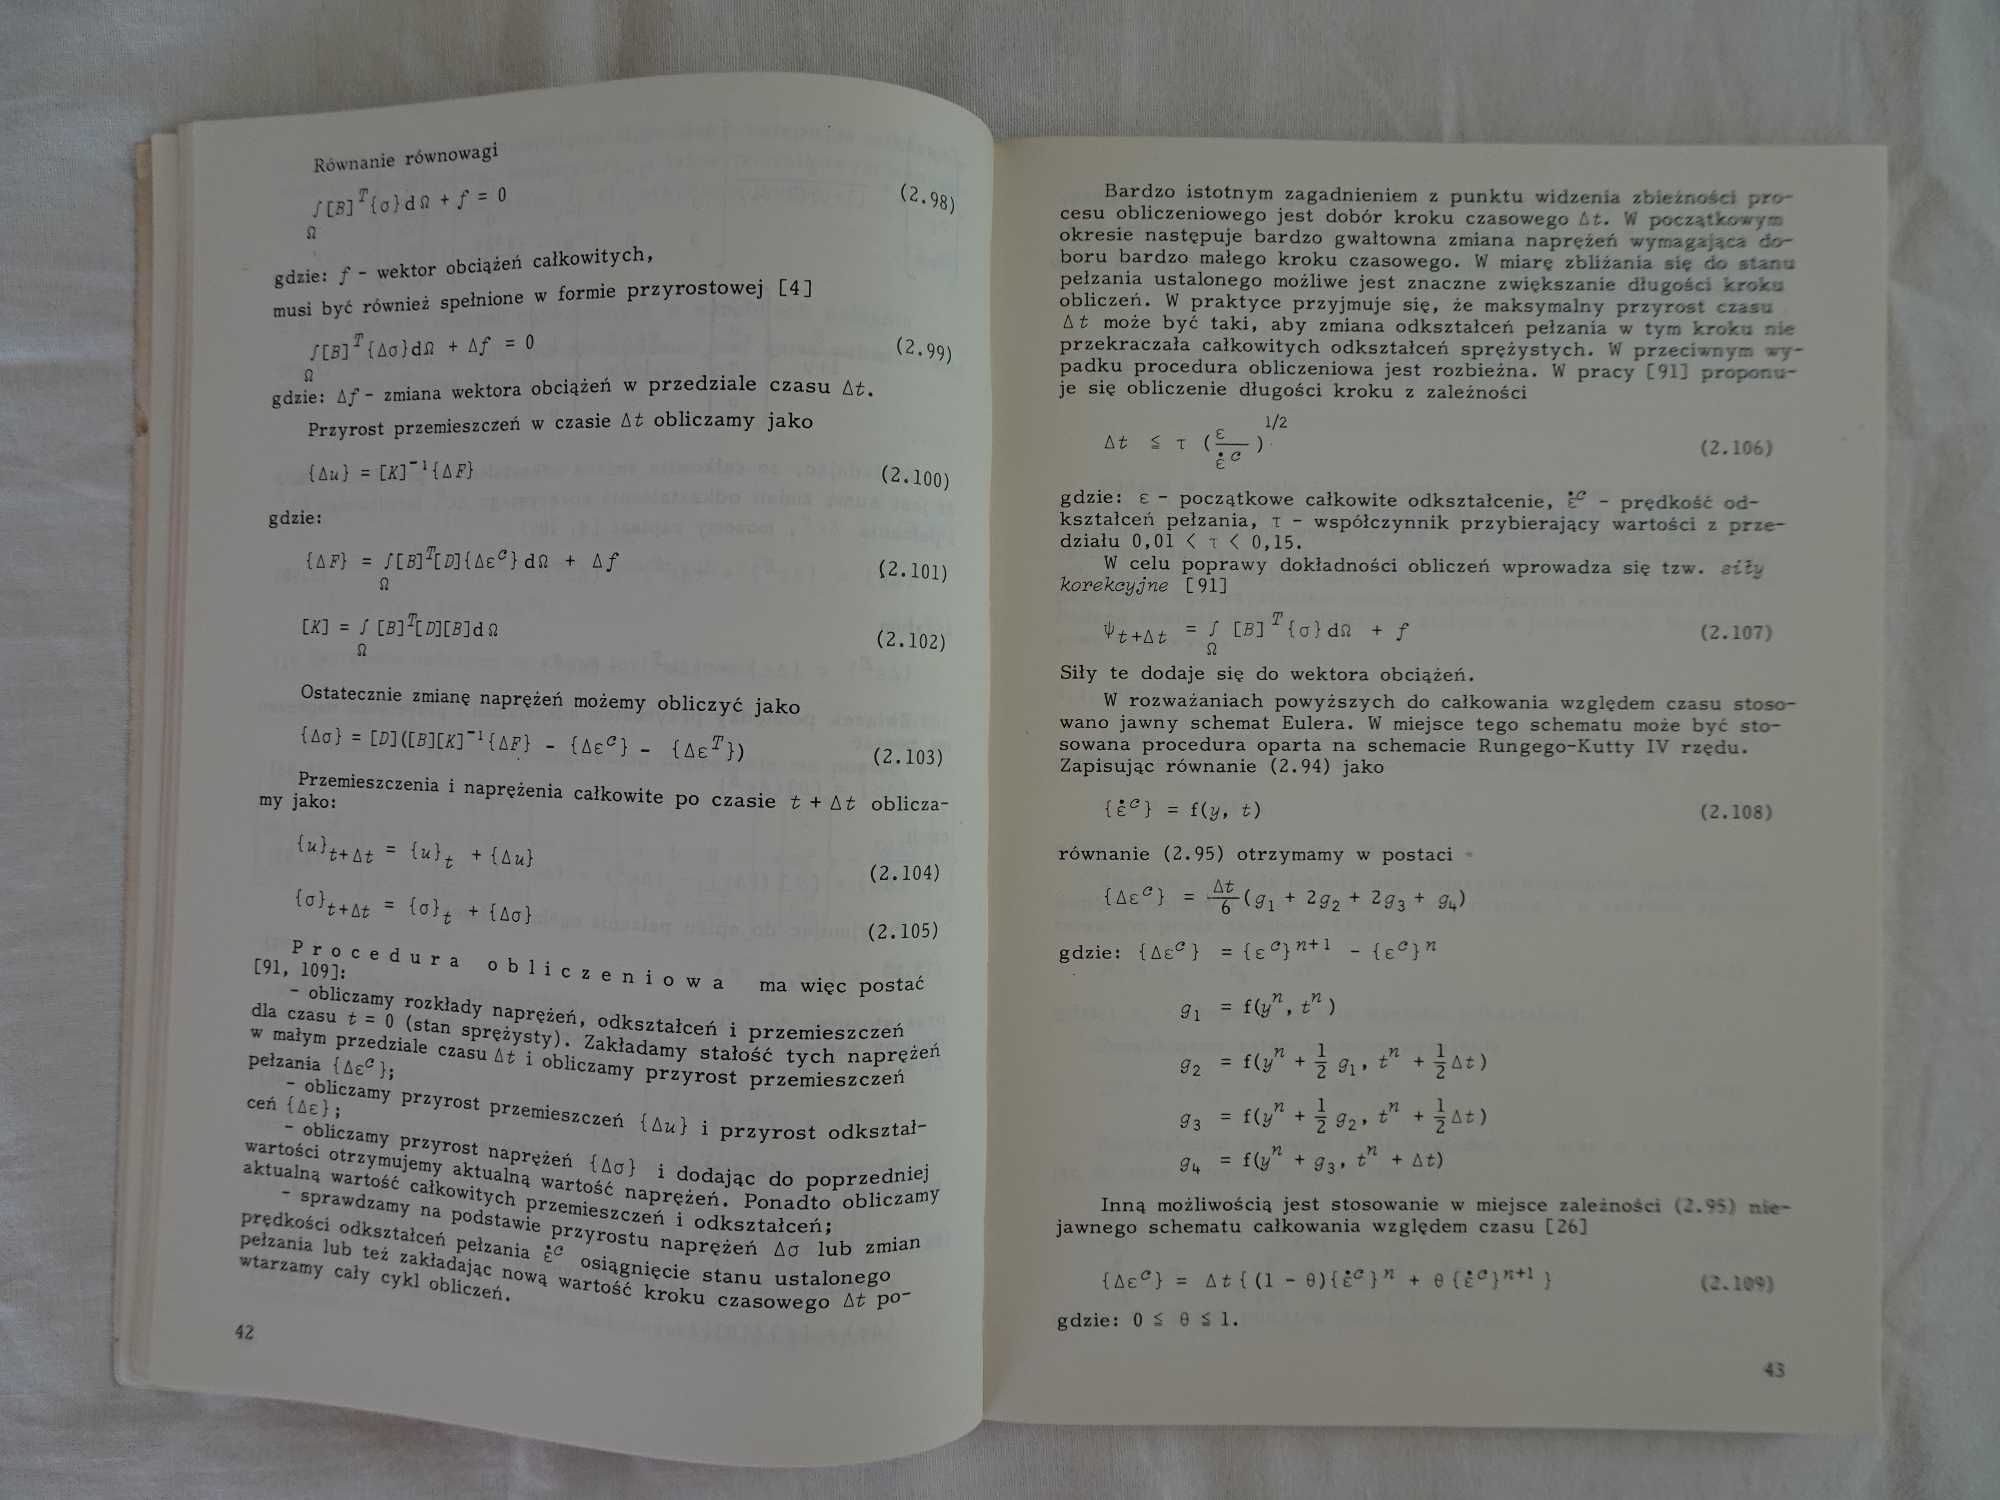 Równanie równowagi
∫[B]ᵀ{σ}dΩ + f = 0 (2.98)
Ω
gdzie: f - wektor obciążeń całkowitych,
musi być również spełnione w formie przyrostowej [4]
∫[B]ᵀ{Δσ}dΩ + Δf = 0 (2.99)
Ω
gdzie: Δf - zmiana wektora obciążeń w przedziale czasu Δt.
Przyrost przemieszczeń w czasie Δt obliczamy jako
{Δu} = [K]⁻¹{ΔF} (2.100)
gdzie:
{ΔF} = ∫[B]ᵀ[D]{Δεᶜ}dΩ + Δf (2.101)
Ω
[K] = ∫[B]ᵀ[D][B]dΩ (2.102)
Ω
Ostatecznie zmianę naprężeń możemy obliczyć jako
{Δσ} = [D]([B][K]⁻¹{ΔF} - {Δεᶜ} - {Δεᵀ}) (2.103)
Przemieszczenia i naprężenia całkowite po czasie t + Δt oblicza-
my jako:
{u}t+Δt = {u}t + {Δu} (2.104)
{σ}t+Δt = {σ}t + {Δσ} (2.105)
P r o c e d u r a o b l i c z e n i o w a ma więc postać
[91, 109]:
- obliczamy rozkłady naprężeń, odkształceń i przemieszczeń
dla czasu t = 0 (stan sprężysty). Zakładamy stałość tych naprężeń
w małym przedziale czasu Δt i obliczamy przyrost przemieszczeń
pełzania {Δεᶜ};
- obliczamy przyrost przemieszczeń {Δu} i przyrost odkształ-
ceń {Δε};
- obliczamy przyrost naprężeń {Δσ} i dodając do poprzedniej
wartości otrzymujemy aktualną wartość naprężeń. Ponadto obliczamy
aktualną wartość całkowitych przemieszczeń i odkształceń;
- sprawdzamy na podstawie przyrostu naprężeń Δσ lub zmian
prędkości odkształceń pełzania ε̇ᶜ osiągnięcie stanu ustalonego
pełzania lub też zakładając nową wartość kroku czasowego Δt po-
wtarzamy cały cykl obliczeń.
42
Bardzo istotnym zagadnieniem z punktu widzenia zbieżności pro-
cesu obliczeniowego jest dobór kroku czasowego Δt. W początkowym
okresie następuje bardzo gwałtowna zmiana naprężeń wymagająca do-
boru bardzo małego kroku czasowego. W miarę zbliżania się do stanu
pełzania ustalonego możliwe jest znaczne zwiększanie długości kroku
obliczeń. W praktyce przyjmuje się, że maksymalny przyrost czasu
Δt może być taki, aby zmiana odkształceń pełzania w tym kroku nie
przekraczała całkowitych odkształceń sprężystych. W przeciwnym wy-
padku procedura obliczeniowa jest rozbieżna. W pracy [91] proponu-
je się obliczenie długości kroku z zależności
Δt ≤ τ (ε/ε̇ᶜ)1/2 (2.106)
gdzie: ε - początkowe całkowite odkształcenie, ε̇ᶜ - prędkość od-
kształceń pełzania, τ - współczynnik przybierający wartości z prze-
działu 0,01 < τ < 0,15.
W celu poprawy dokładności obliczeń wprowadza się tzw. siły
korekcyjne [91]
ψt+Δt = ∫ [B]ᵀ{σ}dΩ + f (2.107)
Ω
Siły te dodaje się do wektora obciążeń.
W rozważaniach powyższych do całkowania względem czasu stoso-
wano jawny schemat Eulera. W miejsce tego schematu może być sto-
sowana procedura oparta na schemacie Rungego-Kutty IV rzędu.
Zapisując równanie (2.94) jako
{ε̇ᶜ} = f(y, t) (2.108)
równanie (2.95) otrzymamy w postaci
{Δεᶜ} = Δt/6 (g₁ + 2g₂ + 2g₃ + g₄)
gdzie: {Δεᶜ} = {εᶜ}ⁿ⁺¹ - {εᶜ}ⁿ
g₁ = f(yⁿ, tⁿ)
g₂ = f(yⁿ + ½ g₁, tⁿ + ½Δt)
g₃ = f(yⁿ + ½ g₂, tⁿ + ½Δt)
g₄ = f(yⁿ + g₃, tⁿ + Δt)
Inną możliwością jest stosowanie w miejsce zależności (2.95) nie-
jawnego schematu całkowania względem czasu [26]
{Δεᶜ} = Δt{(1 - θ){ε̇ᶜ}ⁿ + θ{ε̇ᶜ}ⁿ⁺¹} (2.109)
gdzie: 0 ≤ θ ≤ 1.
43